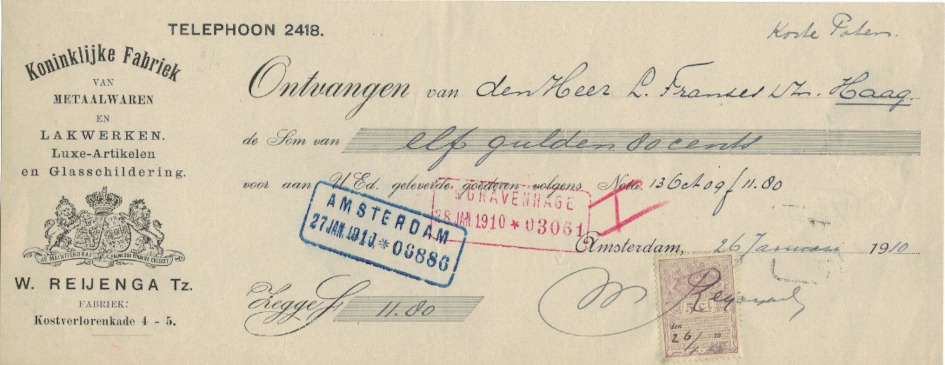 TELEPHOON 2418.
Korte Poten.
Koninklijke Fabriek
VAN
METAALWAREN
EN
LAKWERKEN.
Luxe-Artikelen
en Glasschildering.
JE MAINTIENDRAI
W. REIJENGA Tz.
FABRIEK:
Kostverlorenkade 4 - 5.
Ontvangen van den Heer L. Franses Wzn. Haag.
de Som van elf gulden 80 cents
voor aan UEd. geleverde goederen volgens Nota 13 Oct 09 f 11.80
'SGRAVENHAGE
28 JAN. 1910 * 03061
AMSTERDAM
27 JAN. 1910 * 06886
Amsterdam, 26 Januari 1910
Zegge f 11.80
W Reijenga
5 CT
den
26/1 10